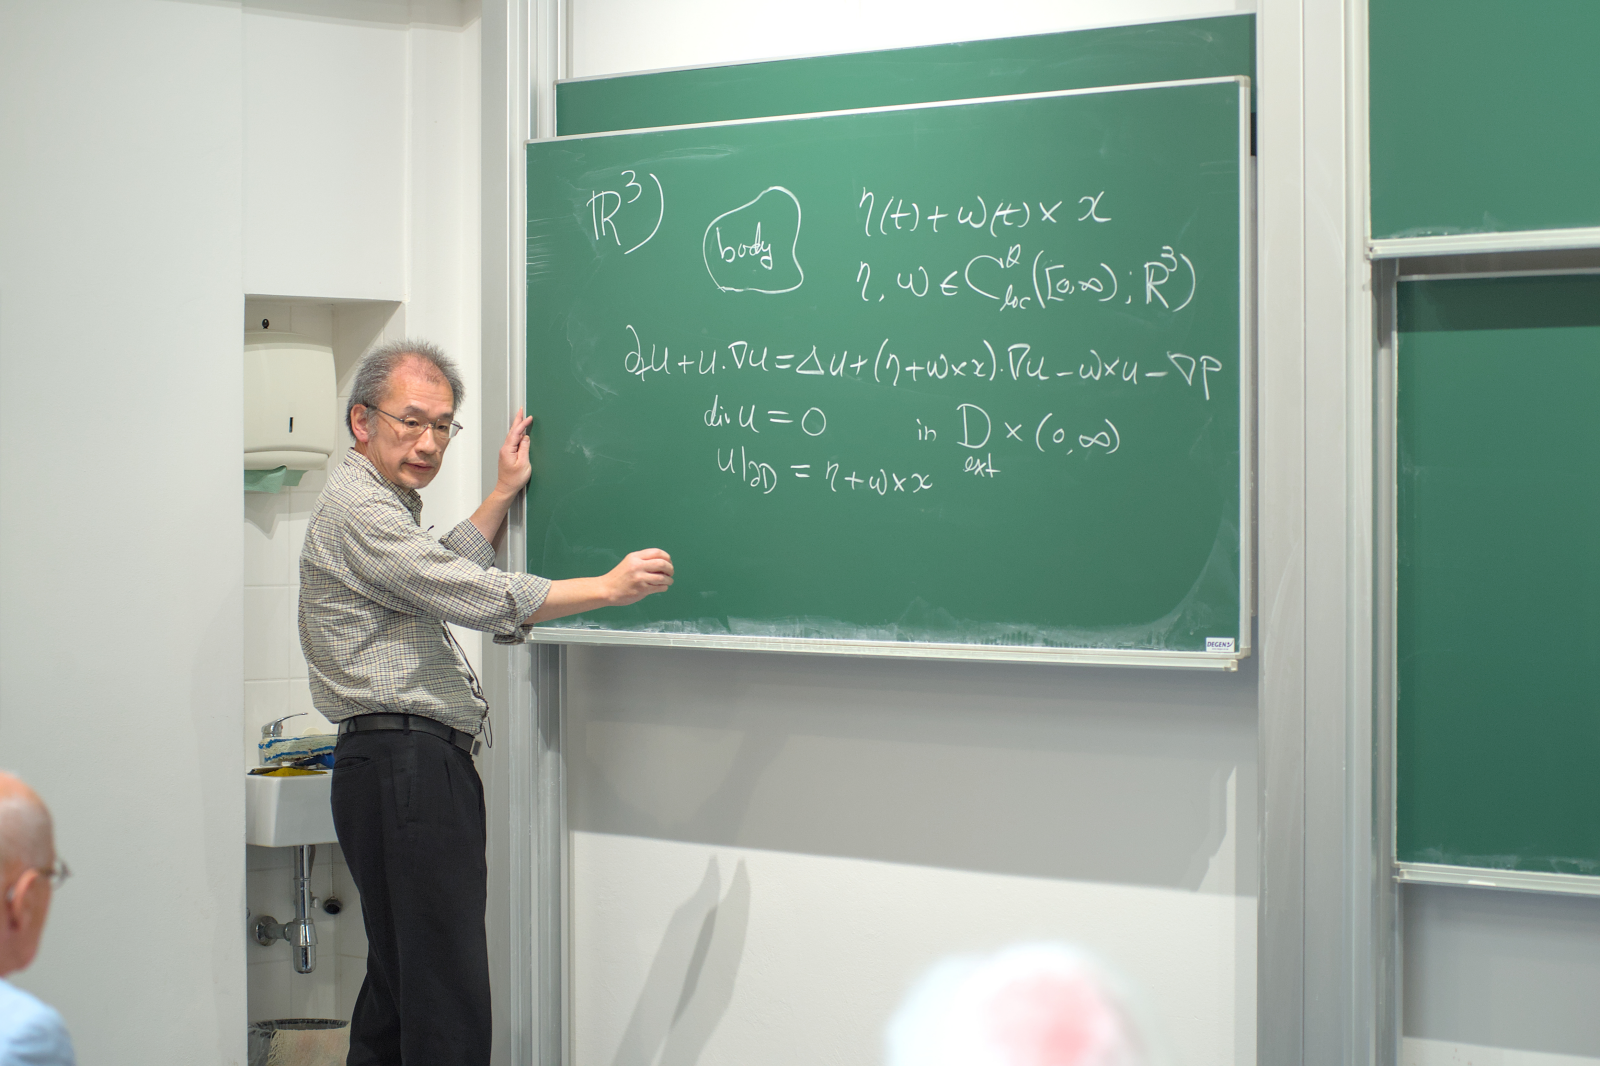 ℝ³)
body
η(t) + ω(t) × x
η, ω ∈ C^θ_loc([0,∞); ℝ³)
∂ₜu + u·∇u = Δu + (η + ω×x)·∇u − ω×u − ∇p
div u = 0 in D × (0,∞)
ext
u|∂D = η + ω×x
DEGEN